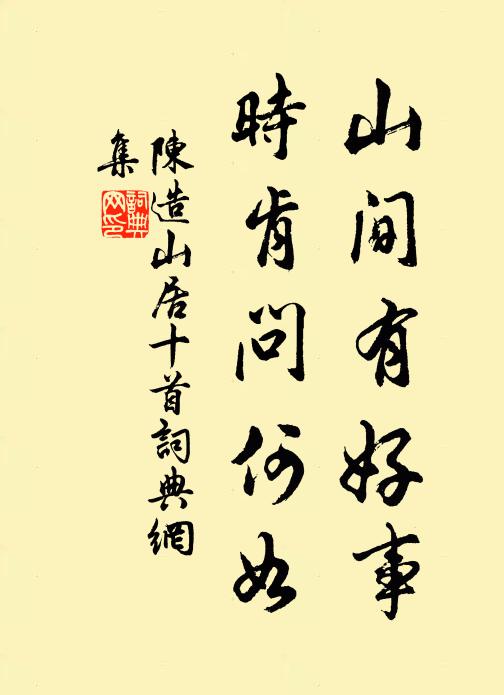 山間有好事
時肯問何如
陳造山居十首詞典網
集
詞典
網印